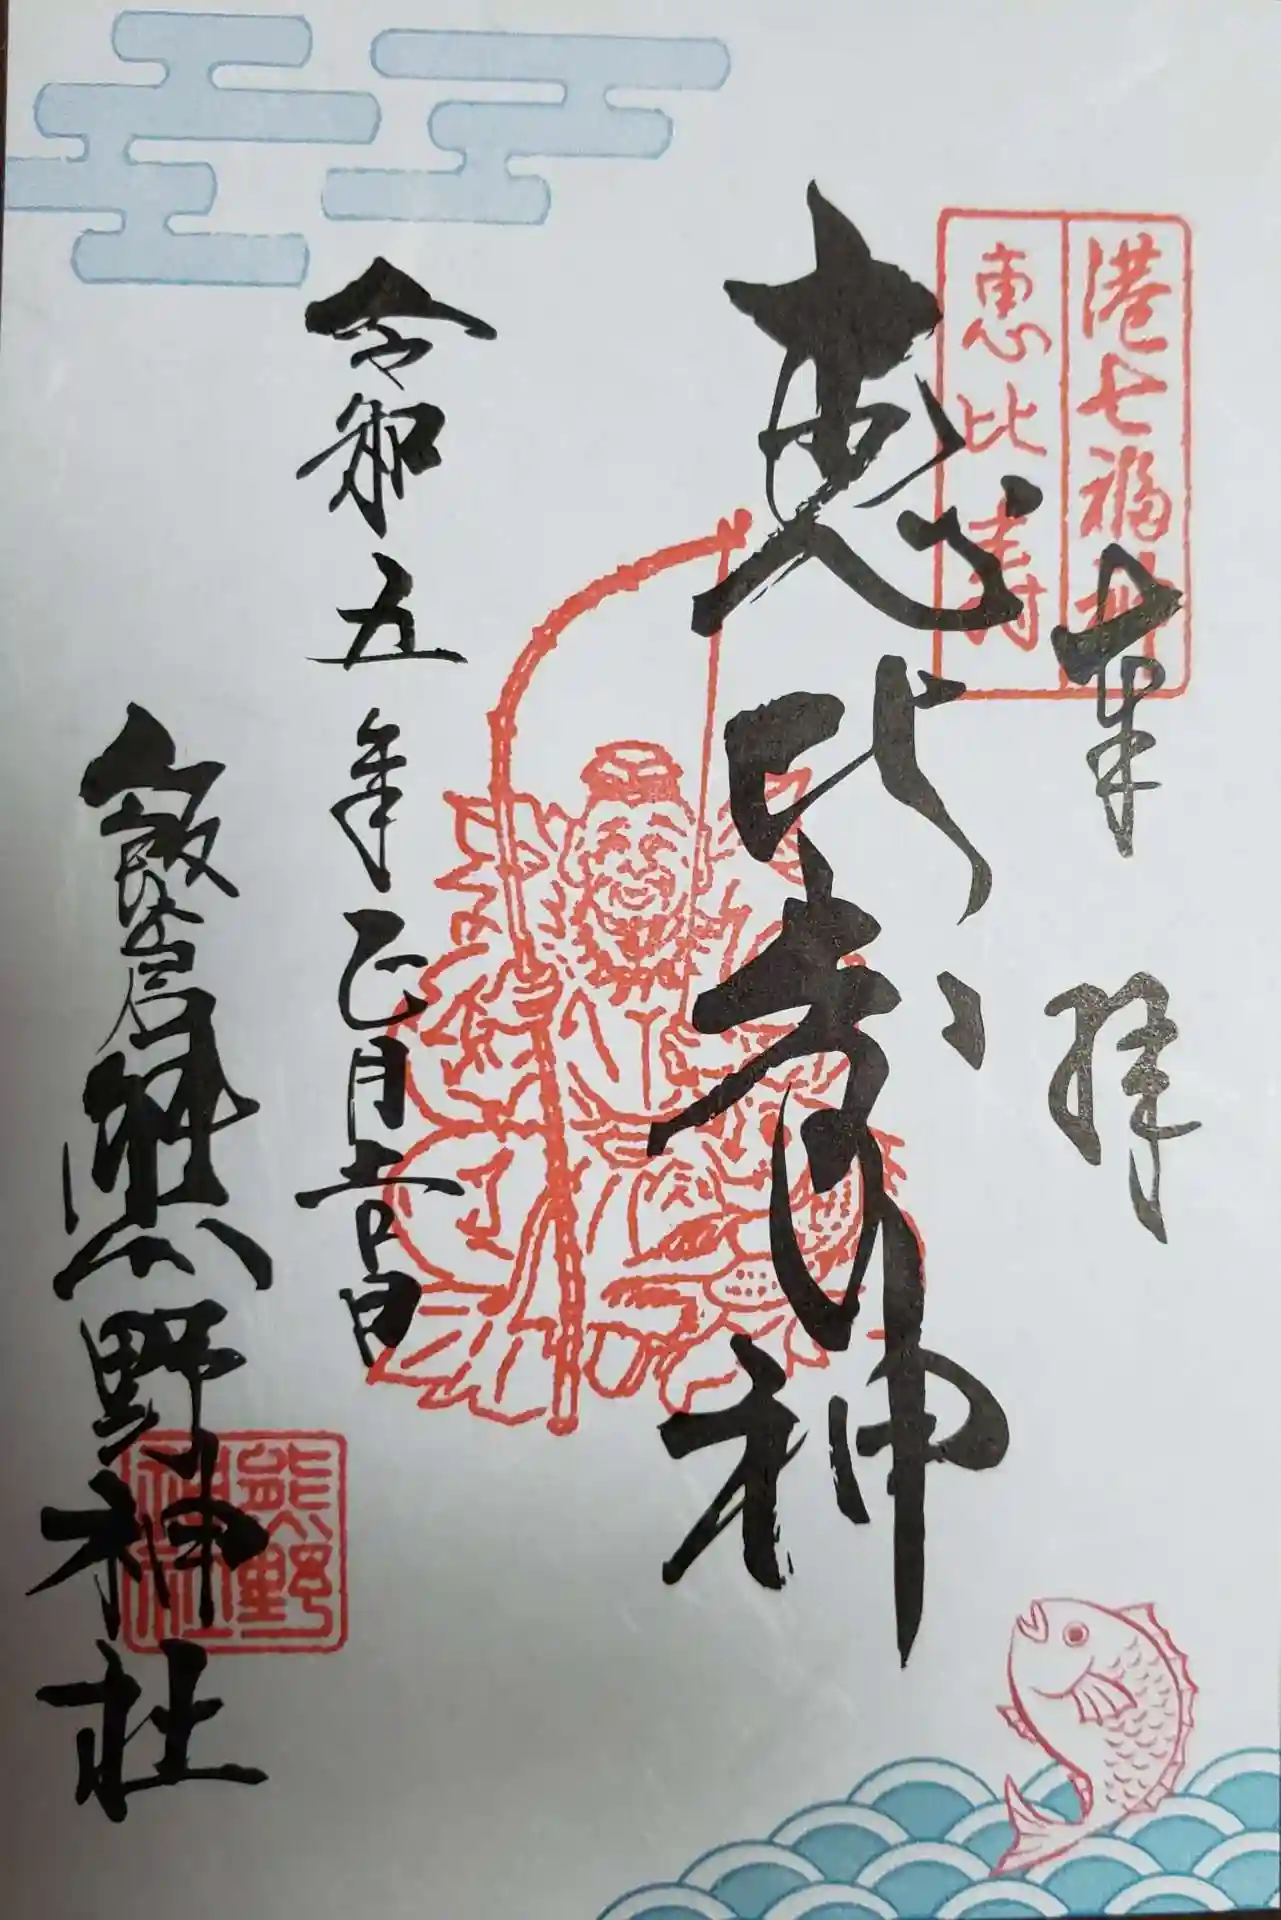 港七福神
恵比寿
奉拝
恵比寿神
令和五年正月吉日
飯倉熊野神社
熊野
神社